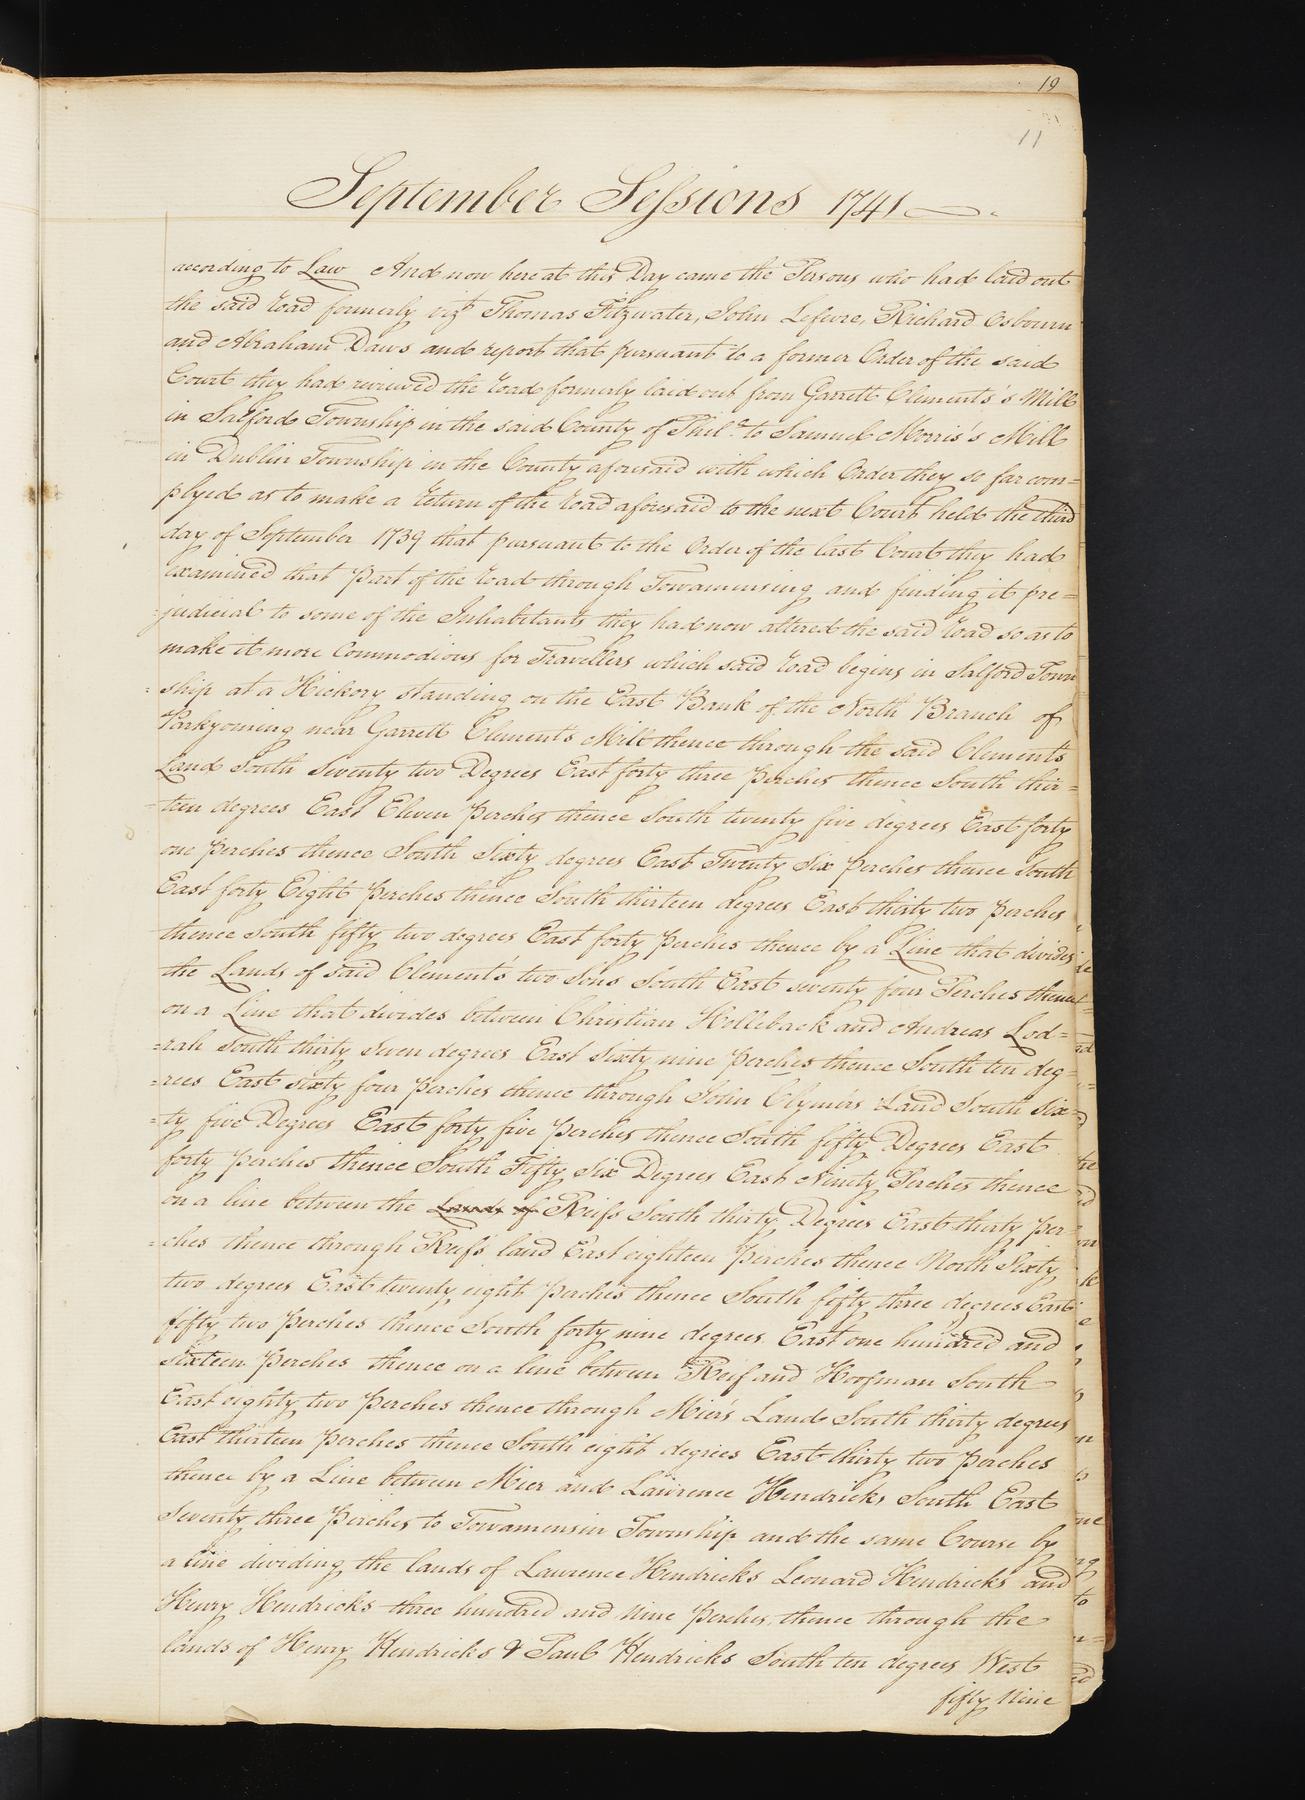 19
11
September Sessions 1741
according to Law And now here at this Day came the Persons who had laid out
the said road formerly vizt Thomas Fitzwater, John Lefevre, Richard Osbourn
and Abraham Daws and report that pursuant to a former Order of the said
Court they had reviewed the road formerly laid out from Garrett Clements's Mill
in Salford Township in the said County of Phila. to Samuel Morris's Mill
in Dublin Township in the County aforesaid with which Order they so far com=
plyed as to make a return of the road aforesaid to the next Court held the third
day of September 1739 that pursuant to the Order of the last Court they had
examined that part of the road through Towamunsing and finding it pre=
=judicial to some of the Inhabitants they had now altered the said road so as to
make it more Commodious for Travellers which said road begins in Salford Town
=ship at a Hickory standing on the East Bank of the North Branch of
Parkyoming near Garrett Clement's Mill thence through the said Clements
Land South Seventy two Degrees East forty three perches thence South thir=
=teen degrees East Eleven perches thence South twenty five degrees East forty
one perches thence South Sixty degrees East Twenty Six perches thence South
East forty Eight perches thence South thirteen degrees East thirty two perches
thence South fifty two degrees East forty perches thence by a Line that divides
the Lands of said Clement's two Sons South East seventy four Perches thence
on a Line that divides between Christian Holleback and Andreas Lod=
=rah South thirty Seven degrees East Sixty nine perches thence South ten deg=
=rees East sixty four perches thence through John Clymers Land South Six=
=ty five Degrees East forty five perches thence South fifty Degrees East
forty perches thence South Fifty Six Degrees East Ninety Perches thence
on a line between the Lands of Reifs South thirty Degrees East thirty per=
=ches thence through Reif's land East eighteen perches thence North Sixty
two degrees East twenty eight perches thence South fifty three degrees East
fifty two perches thence South forty nine degrees East one hundred and
sixteen perches thence on a line between Reif and Hoofman South
East eighty two perches thence through Mier's Land South thirty degrees
East thirteen perches thence South eight degrees East thirty two perches
thence by a Line between Mier and Lawrence Hendricks South East
Seventy three perches to Towamensin Township and the same Course by
a line dividing the lands of Lawrence Hendricks Leonard Hendricks and
Henry Hendricks three hundred and nine perches thence through the
lands of Henry Hendricks & Paul Hendricks South ten degrees West
fifty Nine